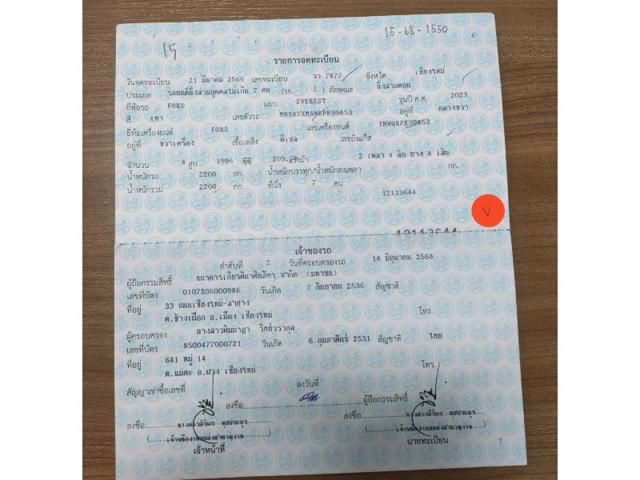 15 15-68-1530
รายการจดทะเบียน
วันจดทะเบียน 21 มีนาคม 2566 เลขทะเบียน 7877 จังหวัด เชียงใหม่
ประเภท รถยนต์นั่งส่วนบุคคลไม่เกิน 7 คน (รย. 1) ลักษณะ นั่งสามตอน
ยี่ห้อรถ FORD แบบ EVEREST รุ่นปี ค.ศ. 2023
สี เทา เลขตัวรถ อยู่ที่ กลางขวา
ยี่ห้อเครื่องยนต์ FORD เลขเครื่องยนต์
อยู่ที่ ขวาเครื่อง เชื้อเพลิง ดีเซล เลขถังแก๊ส
จำนวน 4 สูบ 1996 ซีซี 209. แรงม้า 2 เพลา 4 ล้อ ยาง 4 เส้น
น้ำหนักรถ 2200 กก. น้ำหนักบรรทุก/น้ำหนักลงเพลา กก.
น้ำหนักรวม 2200 กก. ที่นั่ง 7 คน
12113644
12113644
V
เจ้าของรถ
ลำดับที่ 2 วันที่ครอบครองรถ 18 มิถุนายน 2568
ผู้ถือกรรมสิทธิ์ ธนาคารเกียรตินาคินภัทร จำกัด (มหาชน)
เลขที่บัตร 0107536000986 วันเกิด 7 กันยายน 2536 สัญชาติ
ที่อยู่ 33 ถนนเชียงใหม่-ลำปาง
ต.ช้างเผือก อ.เมือง เชียงใหม่ โทร.
ผู้ครอบครอง
เลขที่บัตร 8500477000721 วันเกิด 6 กุมภาพันธ์ 2531 สัญชาติ ไทย
ที่อยู่ 641 หมู่ 14
อ.ฝาง เชียงใหม่ โทร.
สัญญาเช่าซื้อเลขที่ ลงวันที่
ลงชื่อ ผู้ถือกรรมสิทธิ์
ลงชื่อ ลงชื่อ
เจ้าหน้าที่ นายทะเบียน
7